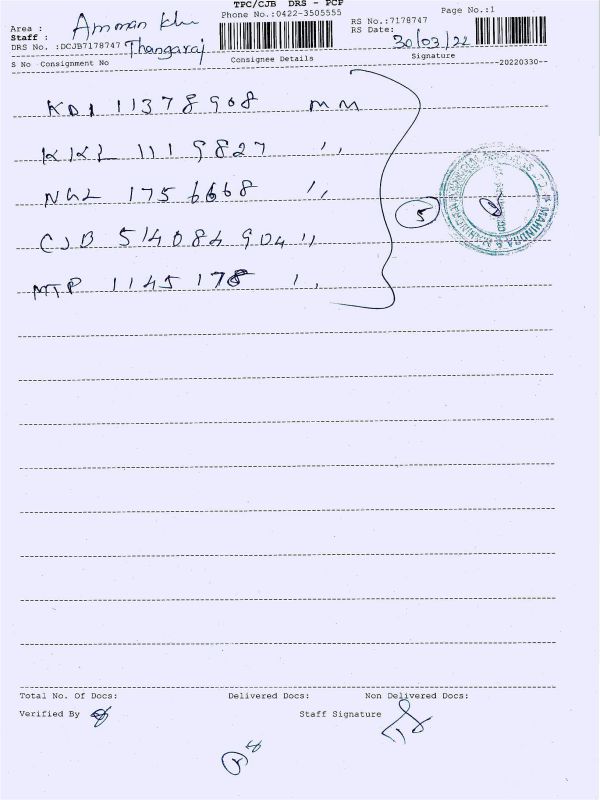 TPC/CJB DRS - PCP
Phone No.:0422-3505555
Page No.:1
RS No.:7178747
RS Date: 30/03/22
Area : Amman
Staff : Thangaraj
DRS No. :DCJB7178747
S No Consignment No Consignee Details Signature
20220330
KDI 11378908 MM
KKL 1119827 ,,
NGL 1756668 ,,
CJB 514084904 ,,
MTP 1145178 ,,
5
MAHINDRA & MAHINDRA
Total No. Of Docs: Delivered Docs: Non Delivered Docs:
Verified By Staff Signature